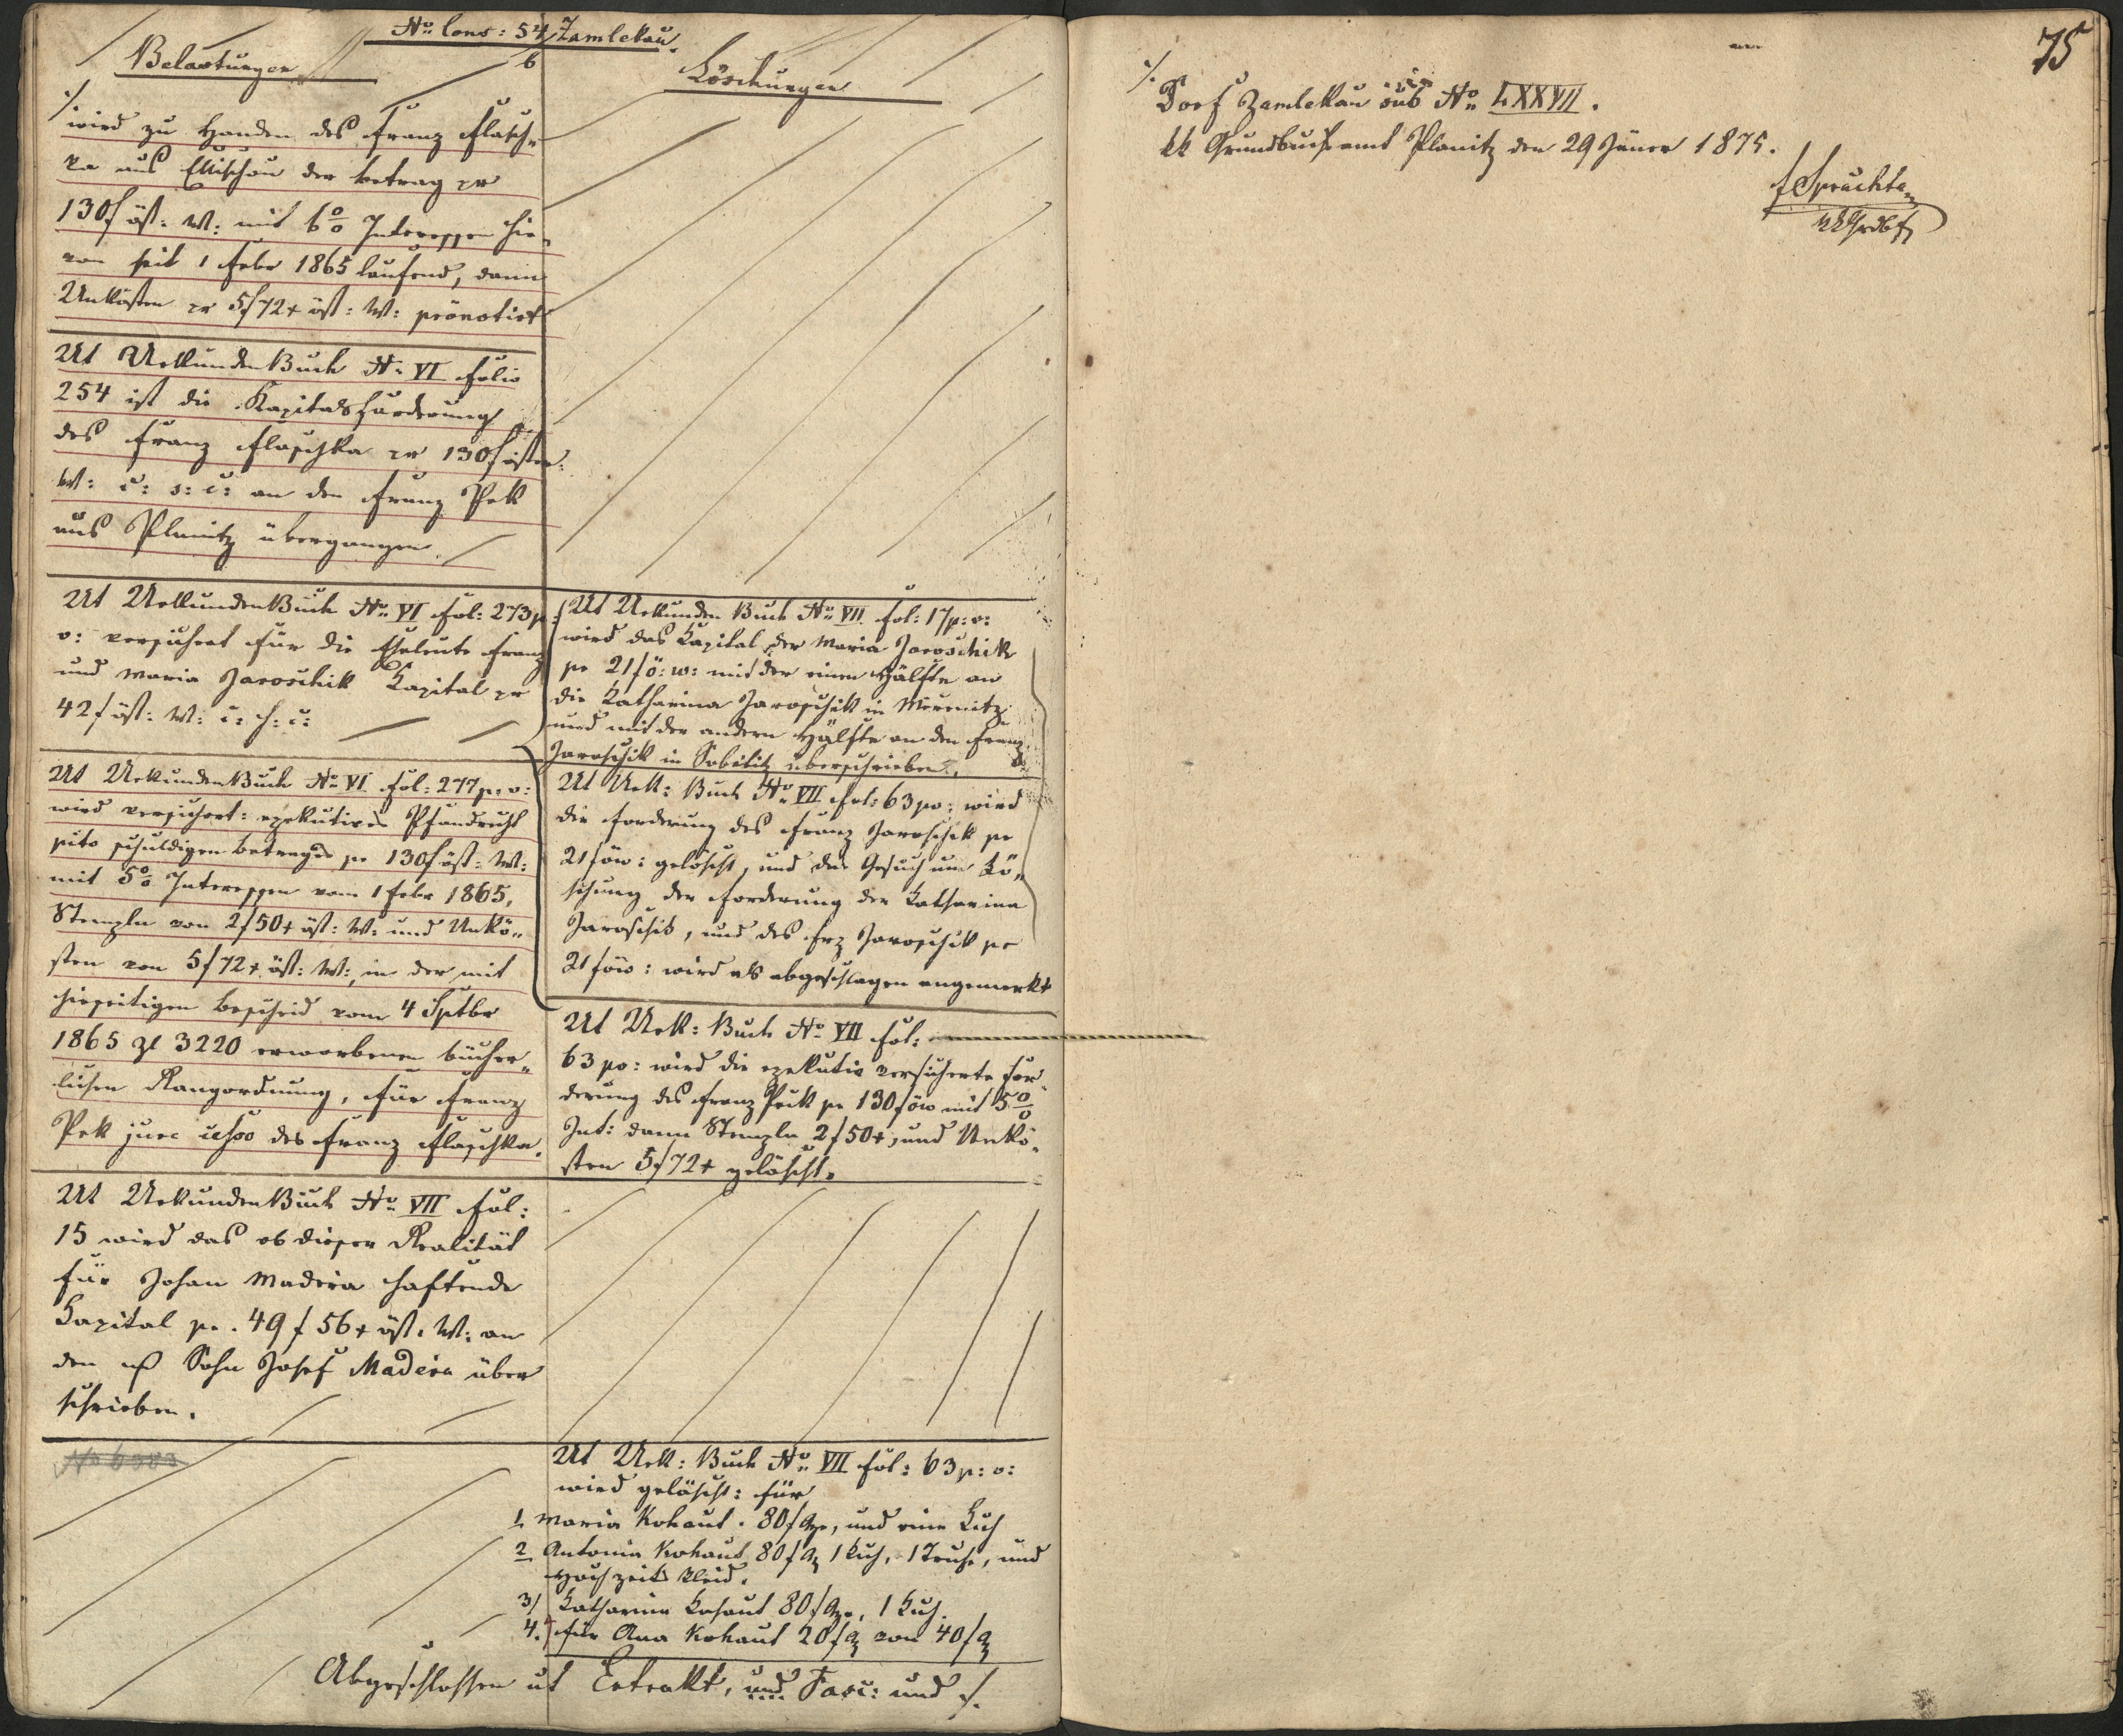 No Cons: 54 Zamlekau.
6
Belastungen
Löschungen
./.
wird zu Handen des Franz Flasch„
ka aus Ellischau der Betrag pr
130 f öst: W: mit 6% Interessen hie„
von seit 1 Febr 1865 laufend, dann
Unkosten pr 5 f 72 x öst: W: pränotirt
Ut Urkunden Buch No VI Folio
254 ist die Kapitalsforderung
des Franz Flaschka pr 130 f öster:
W: c: s: c: an den Franz Pek
aus Planitz übergangen.
Ut Urkunden Buch No VI Fol: 273 p:
v: versichert für die Eheleute Franz
und Maria Jaroschik Kapital pr
42 f öst: W: c: s: c:
Ut Urkunden Buch No VI Fol: 277 p: v:
wird versichert: exekutives Pfandrecht
pcto schuldigen Betrages pr 130 f öst: W:
mit 5% Interessen vom 1 Febr 1865,
Stempln von 2 f 50 x öst: W: und Unkö„
sten von 5 f 72 x öst: W:, in der mit
hieseitigen Bescheid vom 4 Sptbr
1865 Zl 3220 erworbenen bücher„
lichen Rangordnung, für Franz
Pek jure cesso des Franz Flaschka.
Ut Urkunden Buch No VII Fol:
15 wird das ob dieser Realität
für Johan Madera haftende
Kapital pr. 49 f 56 x öst: W: an
den Sohn Josef Madera über
schrieben.
Ut Urkunden Buch No VII Fol: 17 p: v:
wird das Kapital der Maria Jaroschik
pr 21 f ö: w: mit der einen Hälfte an
die Katharina Jaroschik in
und mit der andern Hälfte an den Franz
Jaroschik in überschrieben.
Ut Urk: Buch No VII Fol: 63 pv: wird
die Forderung des Franz Jaroschik pr
21 f öw: gelöscht, und das Gesuch um Lö„
schung der Forderung der Katharina
Jaroschik, und des Frz Jaroschik pr
21 f öw: wird als abgeschlagen angemerkt
Ut Urk: Buch No VII Fol:
63 pv: wird die exekutiv versicherte For„
derung des Franz Pek pr 130 f öw mit 5%
Int: dann Stempln 2 f 50 x, und Unkö„
sten 5 f 72 x gelöscht.
Ut Urk: Buch No VII Fol: 63 p: v:
wird gelöscht: für
1, Maria Kohaut. 80 f, und eine Kuh
2, Antonia Kohaut 80 f 1 Kuh, 1 Truhe, und
Hochzeits Kleid.
3/ Katharina Kohaut 80 f, 1 Kuh.
4.) für Ana Kohaut 20 f von 40 f
Abgeschlossen ut Extrakt, und Fasc: und ./.
75
./.
Dorf Zamlekau sub No LXXVII.
kk Grundbuchsamt Planitz den 29 Jäner 1875.